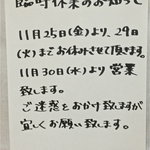 臨時休業のお知らせ
11月25日(金)より、29日
(火)までお休みさせて頂きます。
11月30日(水)より営業
致します。
ご迷惑をおかけ致しますが
宜しくお願い致します。